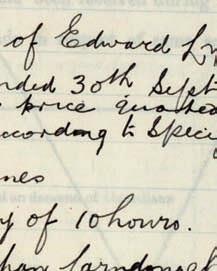 of Edward L
nded 30th Sept
price quoted
according to Speci
nes
y of 10 hours.